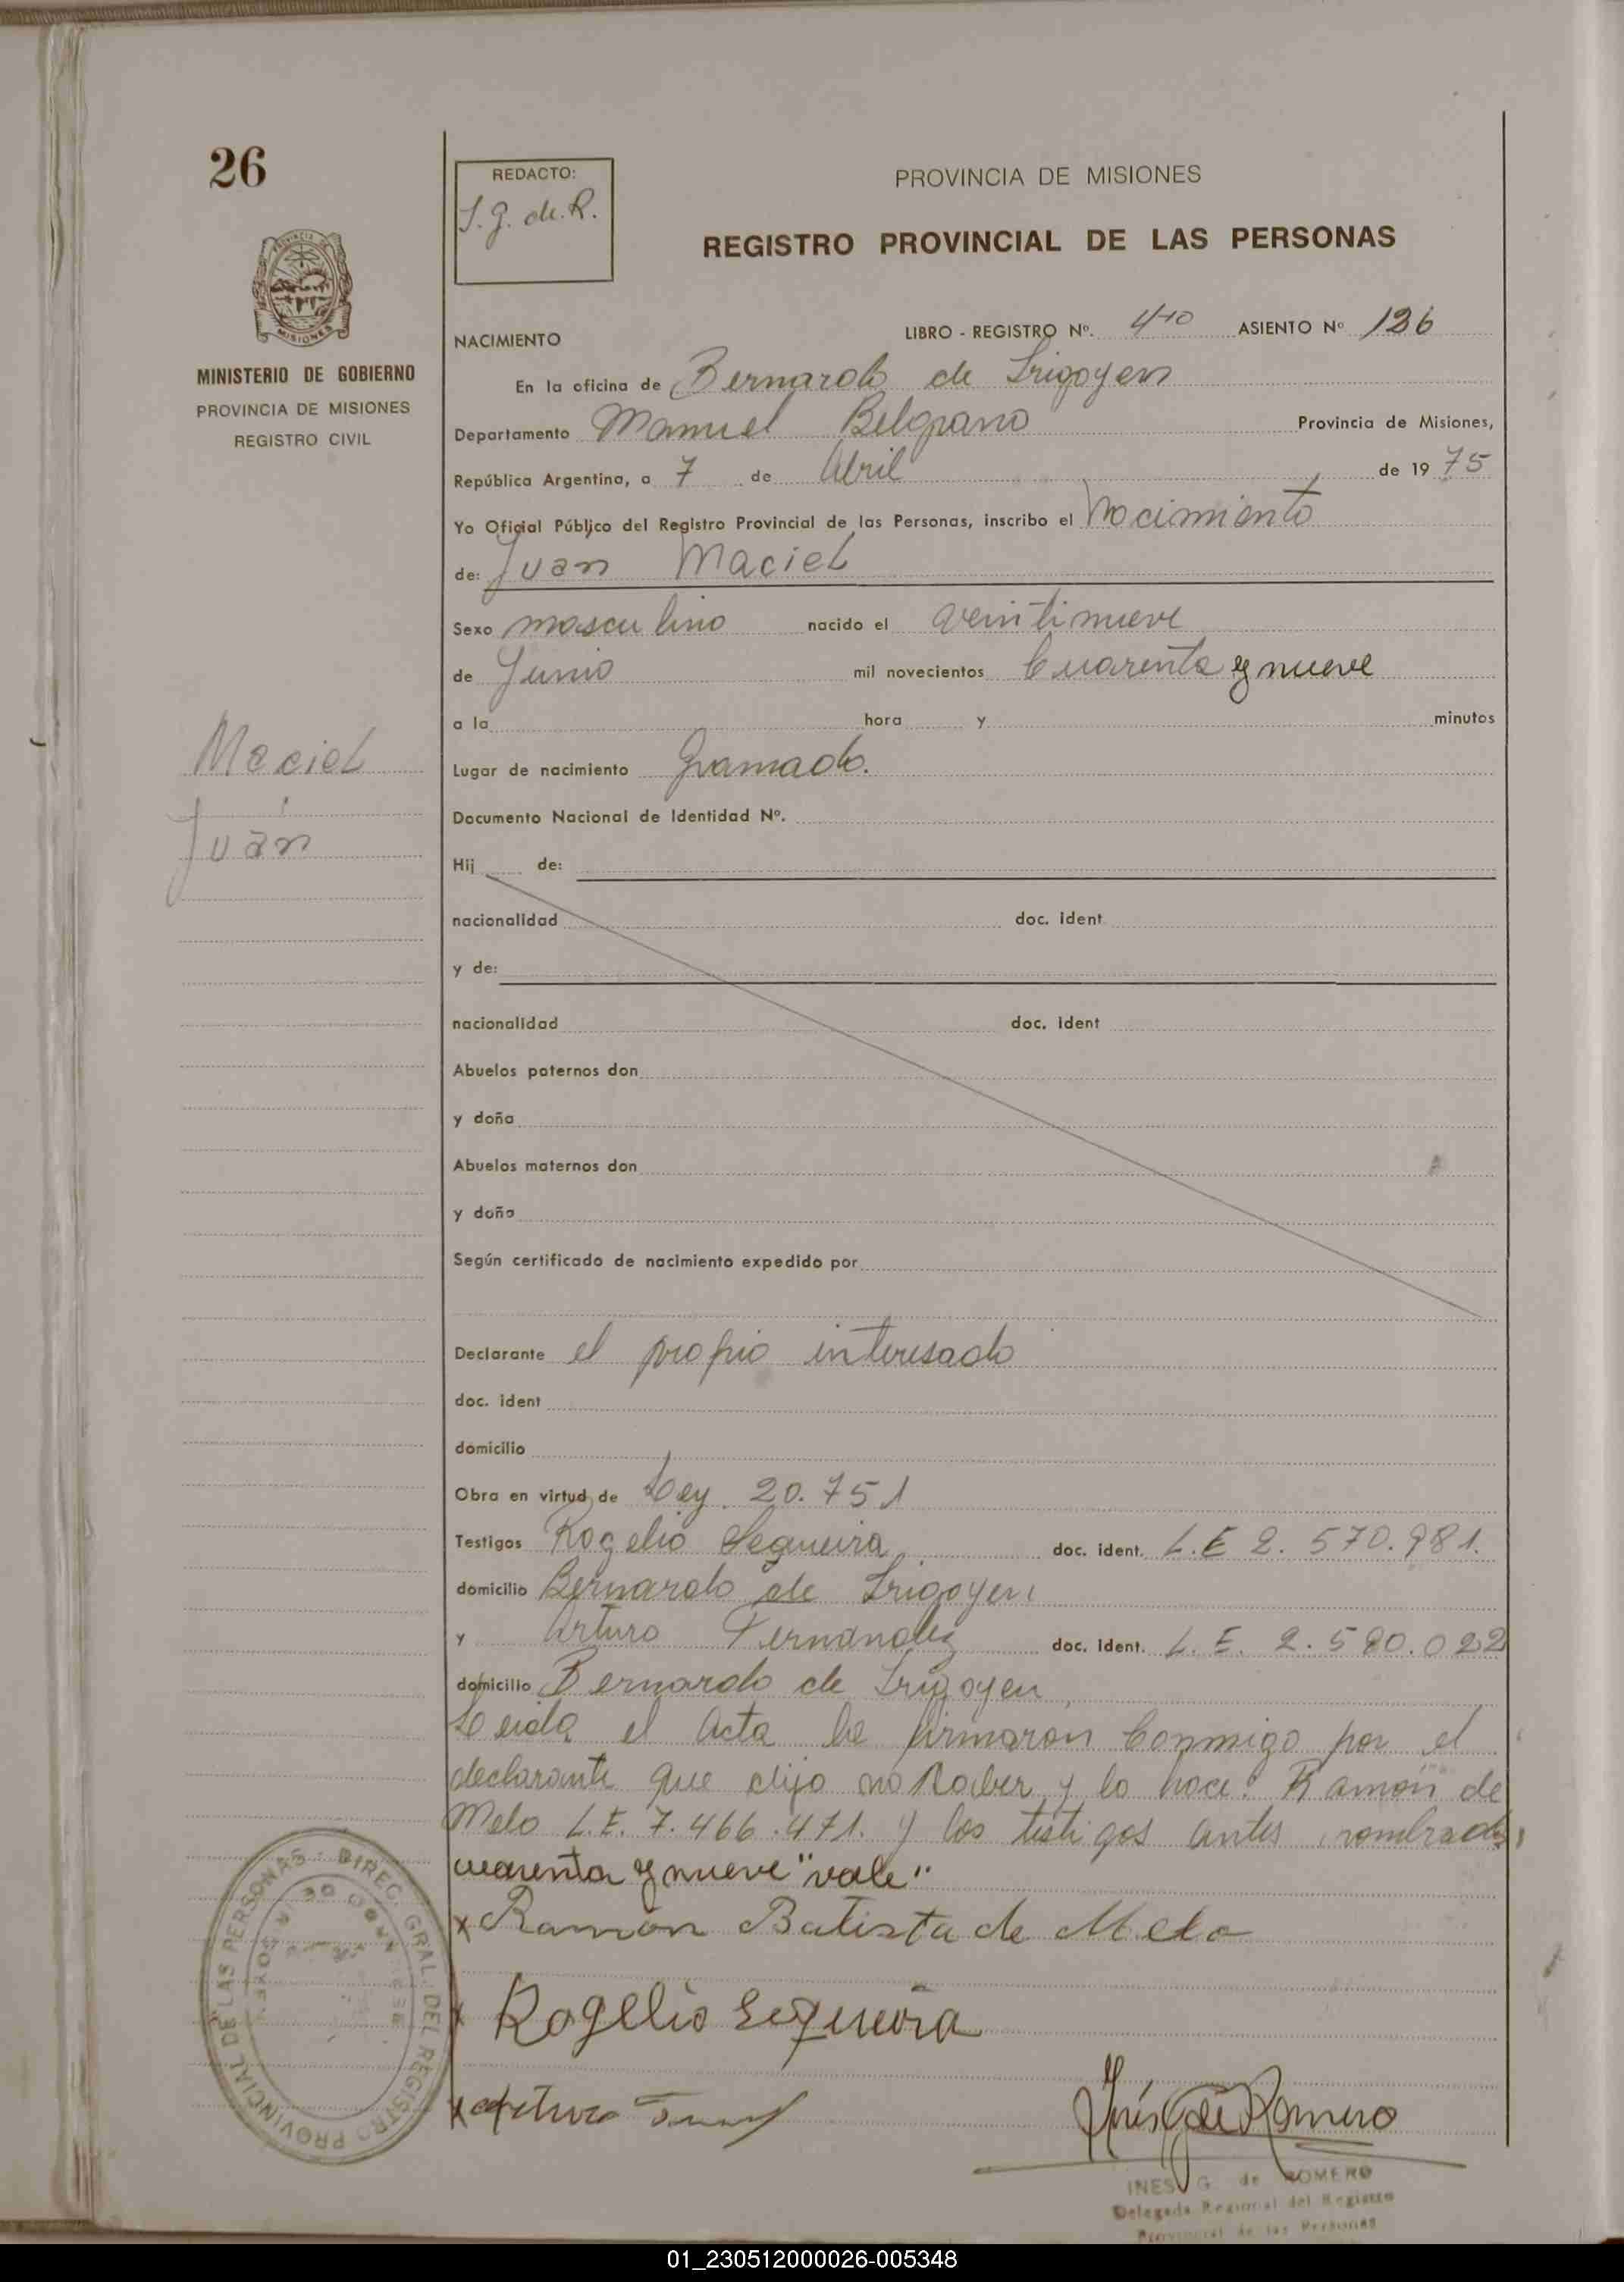 26
REDACTO:
I. G. de. R.
PROVINCIA DE MISIONES
REGISTRO PROVINCIAL DE LAS PERSONAS
PROVINCIA DE MISIONES
MINISTERIO DE GOBIERNO
PROVINCIA DE MISIONES
REGISTRO CIVIL
NACIMIENTO LIBRO - REGISTRO Nº. ASIENTO Nº 126
En la oficina de Bernardo de Irigoyen
Departamento Manuel Belgrano Provincia de Misiones,
República Argentina, a 7 de Abril de 19 75
Yo Oficial Público del Registro Provincial de las Personas, inscribo el Nacimiento
de: Juan Maciel
Sexo masculino nacido el veintinueve
de Junio mil novecientos Cuarenta y nueve
a la hora y minutos
Maciel
Juan
Lugar de nacimiento Gramado.
Documento Nacional de Identidad Nº.
Hij de:
nacionalidad doc. ident
y de:
nacionalidad doc. ident
Abuelos paternos don
y doña
Abuelos maternos don
y doña
Según certificado de nacimiento expedido por
Declarante el propio interesado
doc. ident
domicilio
Obra en virtud de Ley. 20.751
Testigos Rogelio Sequeira doc. ident. L.E 2. 570.981.
domicilio Bernardo de Irigoyen
y Arturo Fernandez doc. ident. L. E. 2.580.022
domicilio Bernardo de Irigoyen,
Leida el Acta la firmaron Conmigo por el
declarante que dijo no saber y lo hace: Ramón de
Melo L.E. 7.466.471. y los testigos antes nombrados,
cuarenta y nueve "vale"
x Ramón Batista de Melo
x Rogelio Sequeira
x Arturo
Inés G de Romero
INES G. de ROMERO
Delegada Regional del Registro
Provincial de las Personas
DIREC. GRAL. DEL REGISTRO PROVINCIAL DE LAS PERSONAS
01_230512000026-005348